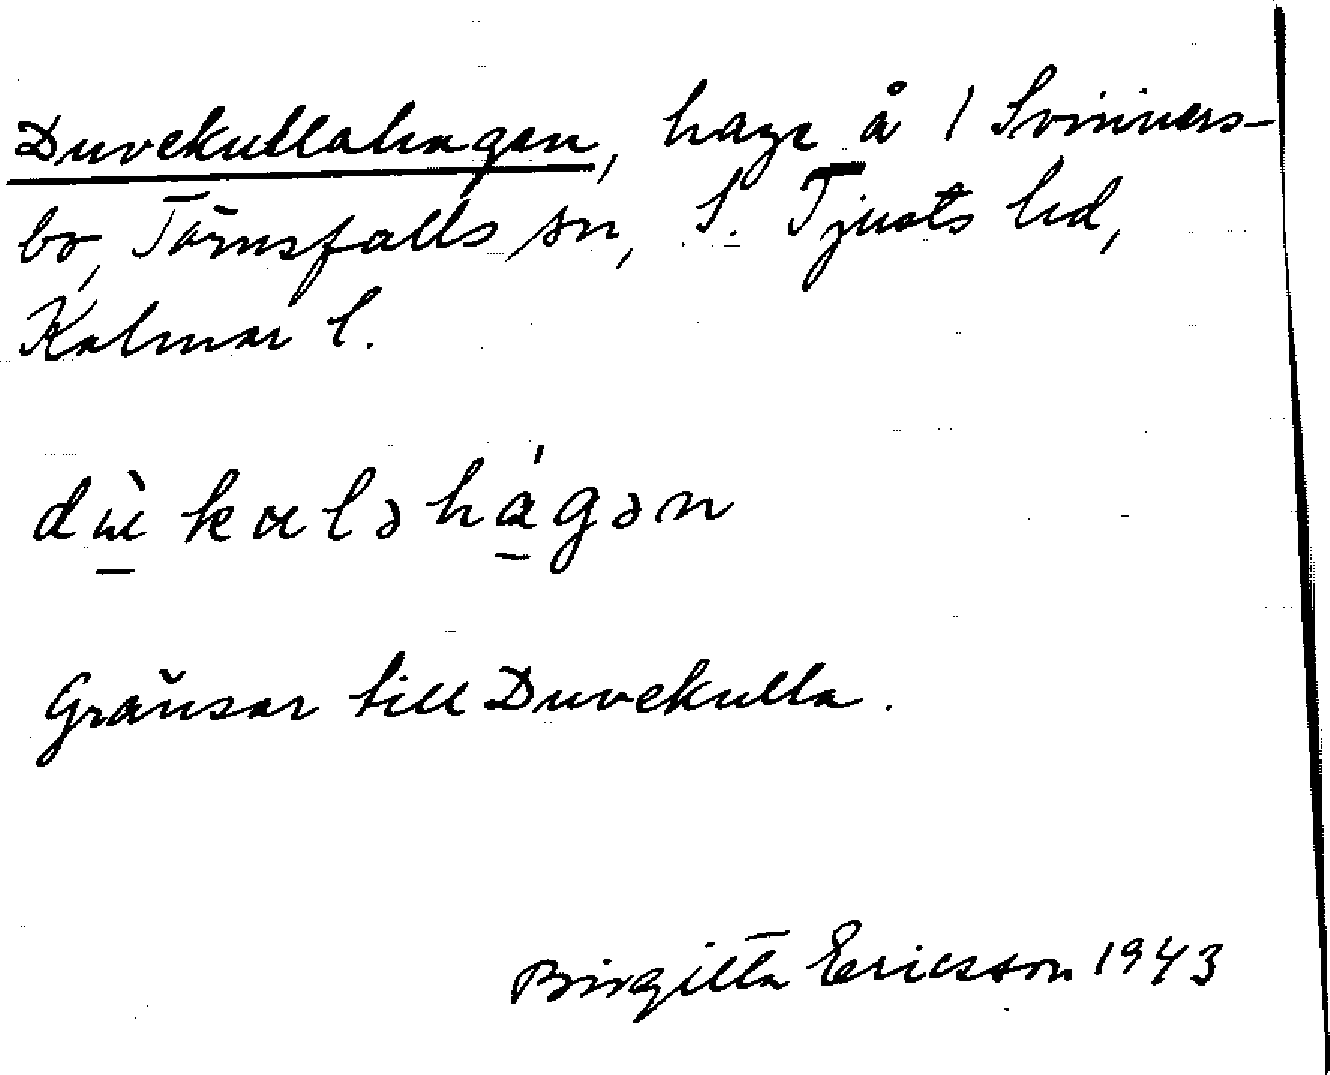 Duvekullahagen, hage å 1 Svinners-
bo, Törnsfalls sn, S. Tjusts hd,
Kalmar l.
dɯ̀kɷləhágən
Gränsar till Duvekulla.
Birgitta Ericsson 1943